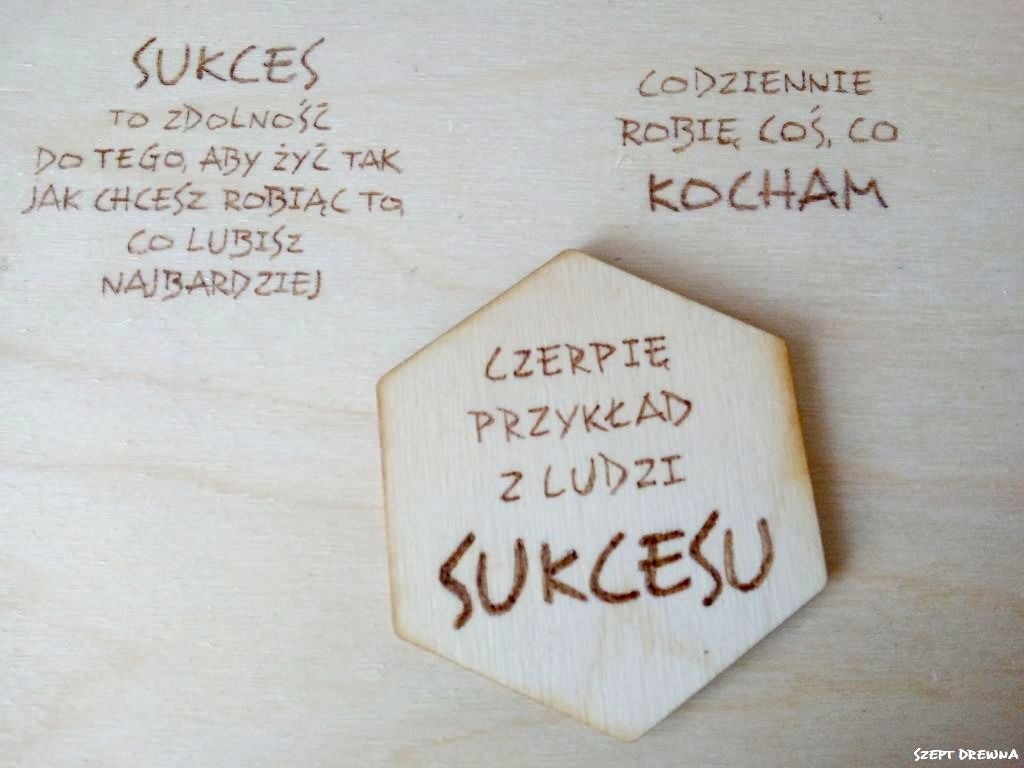 SUKCES
TO ZDOLNOŚĆ
DO TEGO, ABY ŻYĆ TAK
JAK CHCESZ ROBIĄC TO,
CO LUBISZ
NAJBARDZIEJ
CODZIENNIE
ROBIĘ COŚ, CO
KOCHAM
CZERPIĘ
PRZYKŁAD
Z LUDZI
SUKCESU
SZEPT DREWNA